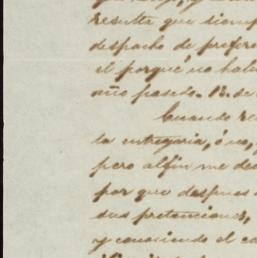 resulta que siemp
despacho de prefere
el porqué no habe
año pasado. 13. de
Cuando re
la entregaria, ó no,
pero al fin me de
por que despues
sus pretenciones,
y conociendo el ca